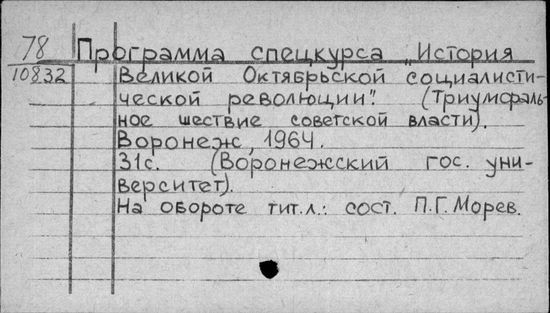 78 Программа спецкурса „История
10832 Великой Октябрьской социалисти-
ческой революции". (Триумфаль-
ное шествие советской власти).
Воронеж, 1964.
31с. (Воронежский гос. уни-
верситет).
На обороте тит.л.: сост. П.Г. Морев.